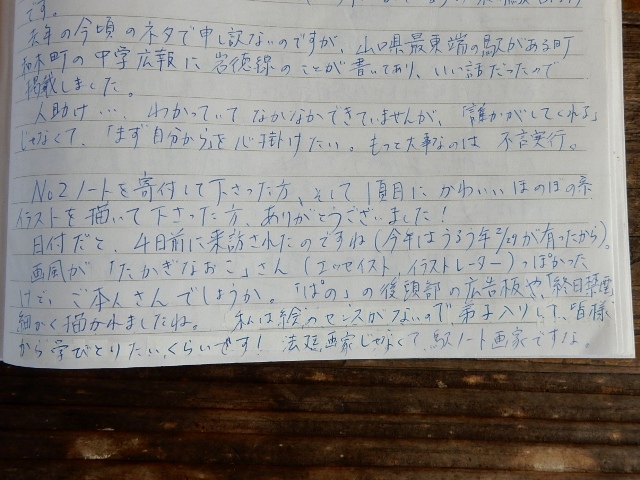 です。
去年の今頃のネタで申し訳ないのですが、山口県最東端の駅がある町
和木町の中学広報に岩徳線のことが書いてあり、いい話だったので
掲載しました。
人助け…、わかっていてなかなかできていませんが、「誰かがしてくれる」
じゃなくて、「まず自分から」を心掛けたい。もっと大事なのは 不言実行。
No2ノートを寄付して下さった方、そして1頁目にかわいいほのぼの系
イラストを描いて下さった方、ありがとうございました!
日付だと、4日前に来訪されたのですね(今年はうるう年2/29が有ったから)。
画風が「たかぎなおこ」さん(エッセイスト、イラストレーター)っぽかった
けど、ご本人さんでしょうか。「ぱの」の後頭部の広告板や、「終日禁煙」
細かく描かれましたね。 私は絵のセンスがないので弟子入りして、皆様
から学びとりたいくらいです! 法廷画家じゃなくて、駅ノート画家ですな。